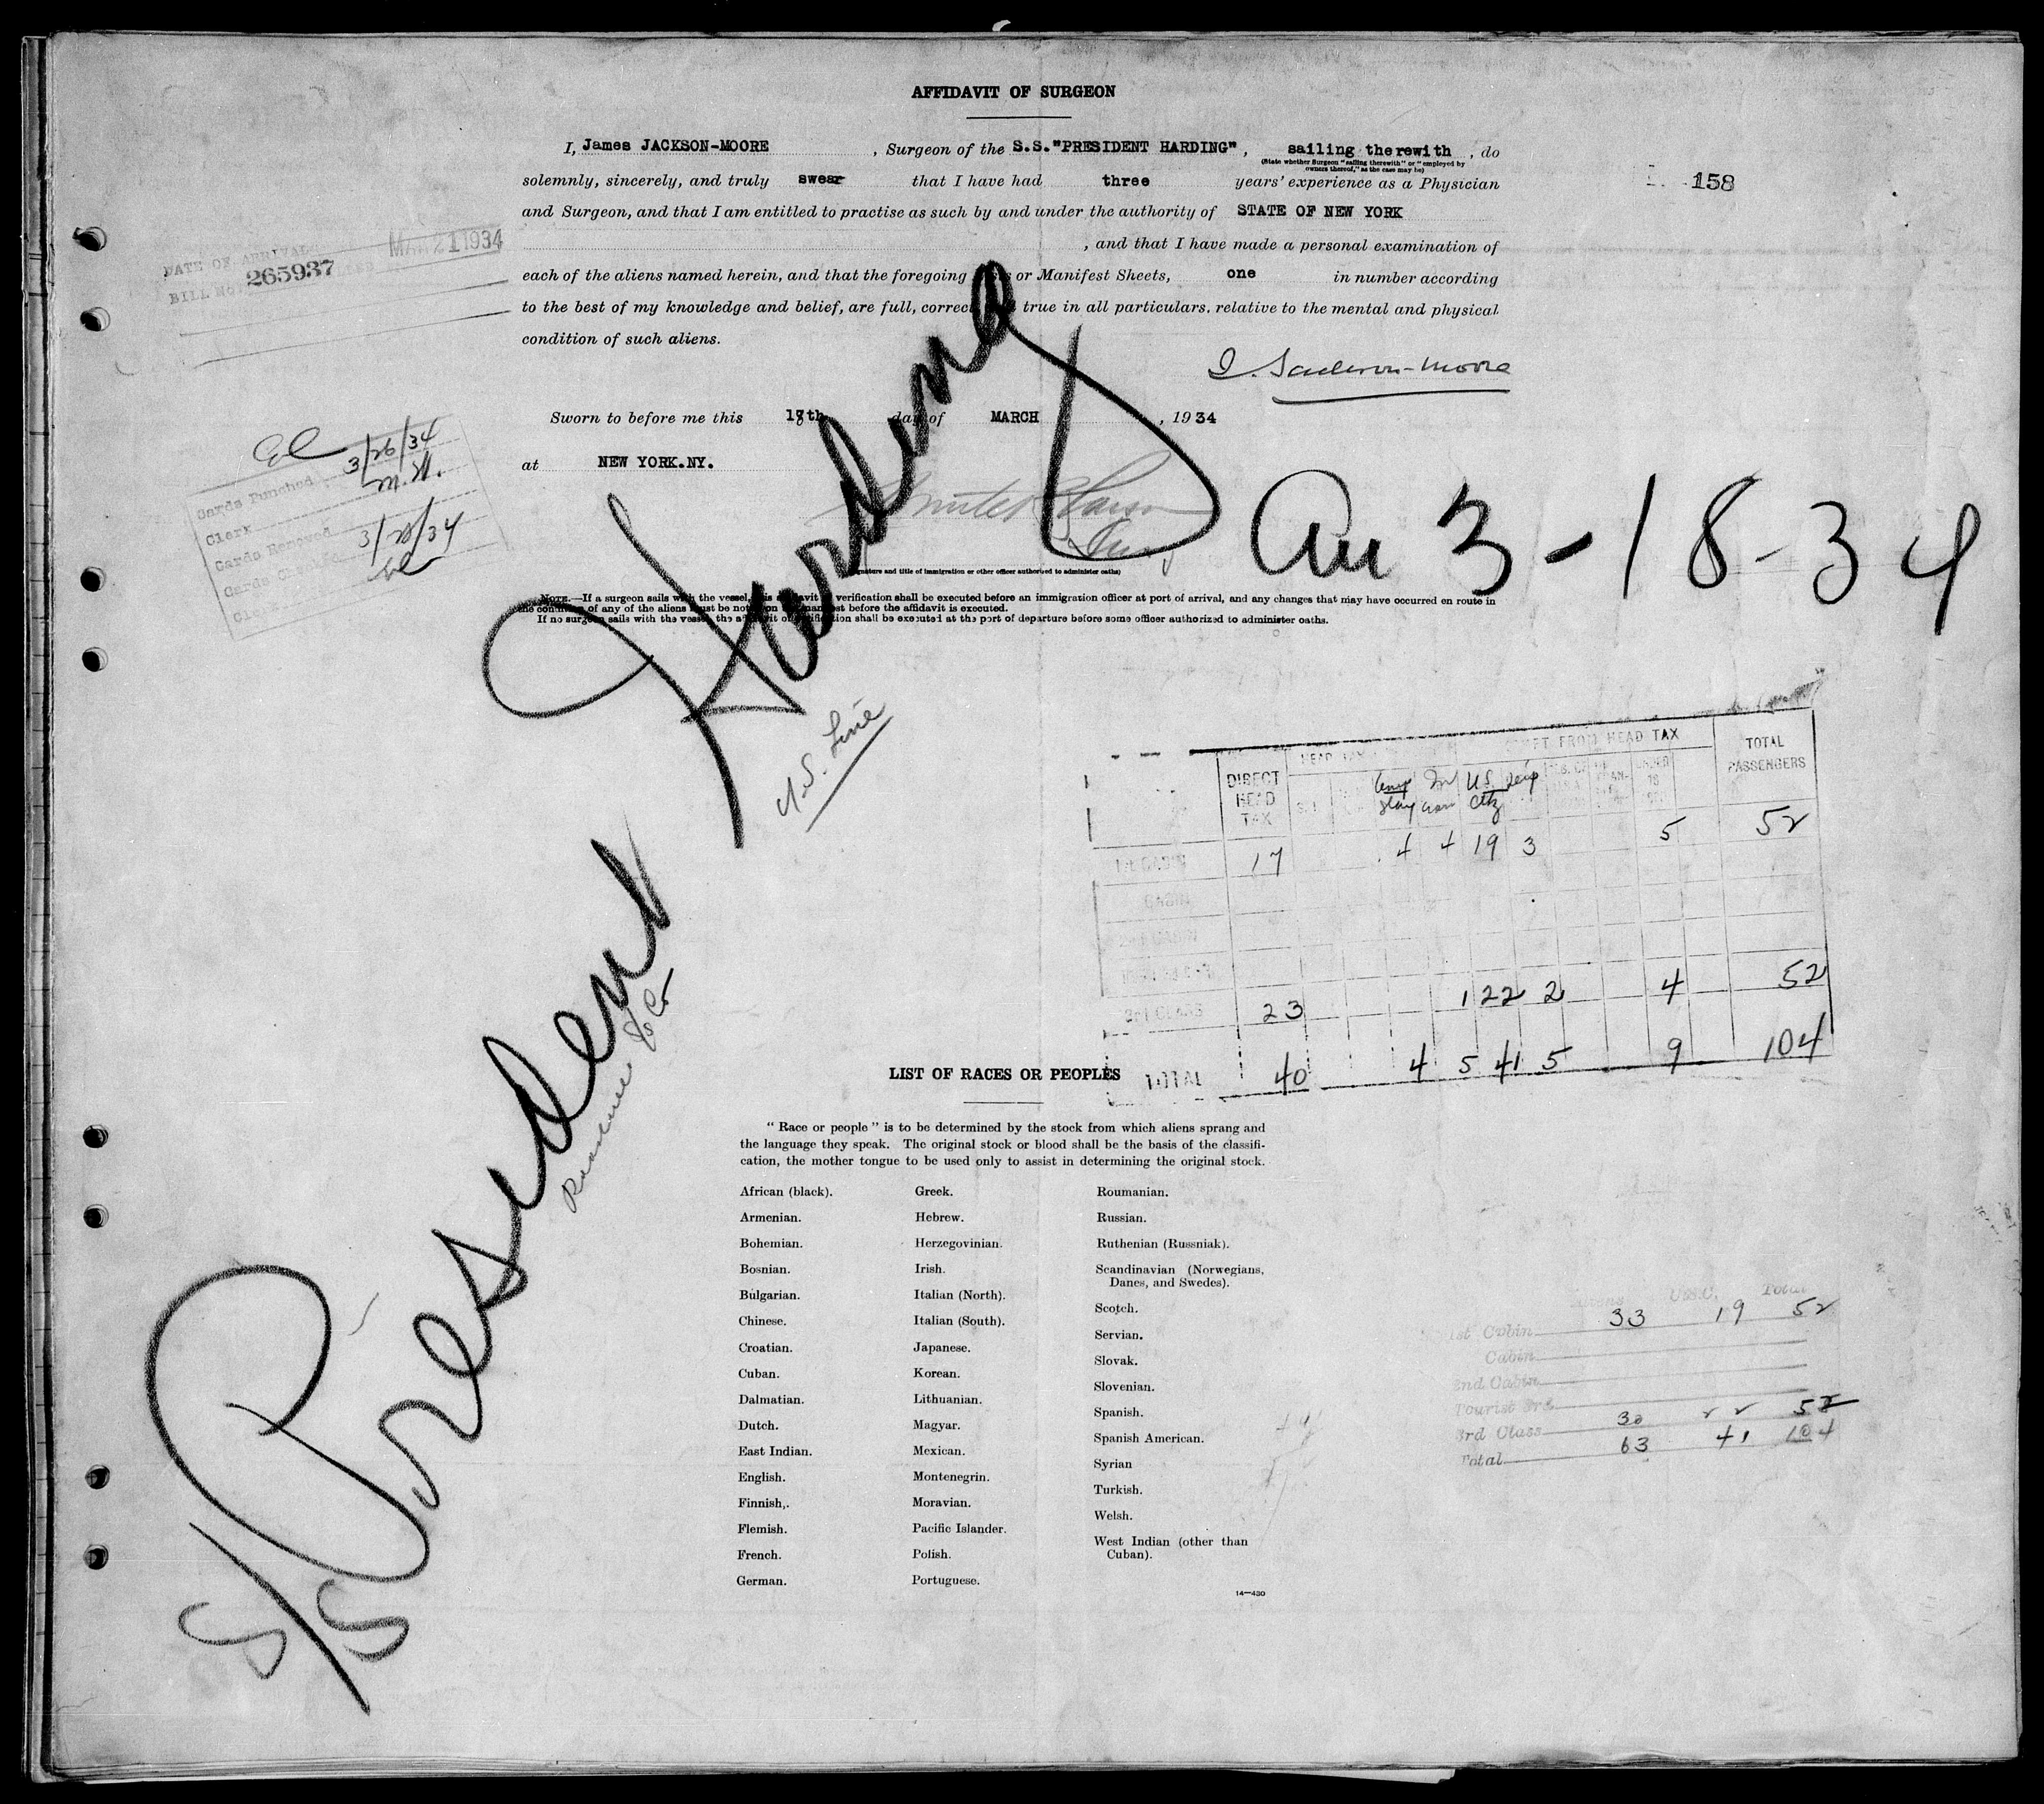 AFFIDAVIT OF SURGEON
I, James JACKSON-MOORE, Surgeon of the S.S."PRESIDENT HARDING", sailing therewith, do
(State whether Surgeon "sailing therewith" or "employed by
owners thereof," as the case may be)
solemnly, sincerely, and truly swear that I have had three years' experience as a Physician
158
and Surgeon, and that I am entitled to practise as such by and under the authority of STATE OF NEW YORK
, and that I have made a personal examination of
DATE OF ARRIVAL MAR 21 1934
BILL No. 265937
each of the aliens named herein, and that the foregoing or Manifest Sheets, one in number according
to the best of my knowledge and belief, are full, correct true in all particulars, relative to the mental and physical
condition of such aliens.
J. Jackson-Moore
Sworn to before me this 18th day of MARCH, 1934
at NEW YORK.NY.
Cards Punched 3/26/34
Clerk M.H.
Cards Removed 3/28/34
(Signature and title of immigration or other officer authorized to administer oaths)
NOTE.—If a surgeon sails with the vessel, this affidavit of verification shall be executed before an immigration officer at port of arrival, and any changes that may have occurred en route in
the condition of any of the aliens must be noted on the manifest before the affidavit is executed.
If no surgeon sails with the vessel, the affidavit of verification shall be executed at the port of departure before some officer authorized to administer oaths.
S/S President Harding
U.S. Line
Arr 3-18-34
DIRECT HEAD TAX
HEAD TAX
EXEMPT FROM HEAD TAX
TOTAL PASSENGERS
U.S. Ctz
1st CABIN 17 4 4 19 3 5 52
CABIN
2nd CABIN
3rd CLASS 23 1 22 2 4 52
TOTAL 40 4 5 41 5 9 104
LIST OF RACES OR PEOPLES
"Race or people" is to be determined by the stock from which aliens sprang and
the language they speak. The original stock or blood shall be the basis of the classifi-
cation, the mother tongue to be used only to assist in determining the original stock.
African (black).
Armenian.
Bohemian.
Bosnian.
Bulgarian.
Chinese.
Croatian.
Cuban.
Dalmatian.
Dutch.
East Indian.
English.
Finnish,.
Flemish.
French.
German.
Greek.
Hebrew.
Herzegovinian.
Irish.
Italian (North).
Italian (South).
Japanese.
Korean.
Lithuanian.
Magyar.
Mexican.
Montenegrin.
Moravian.
Pacific Islander.
Polish.
Portuguese.
Roumanian.
Russian.
Ruthenian (Russniak).
Scandinavian (Norwegians,
Danes, and Swedes).
Scotch.
Servian.
Slovak.
Slovenian.
Spanish.
Spanish American.
Syrian
Turkish.
Welsh.
West Indian (other than
Cuban).
14—430
U.S.C. Total
1st Cabin 33 19 52
Cabin
2nd Cabin
Tourist 3rd
3rd Class 30 22 52
Total 63 41 104